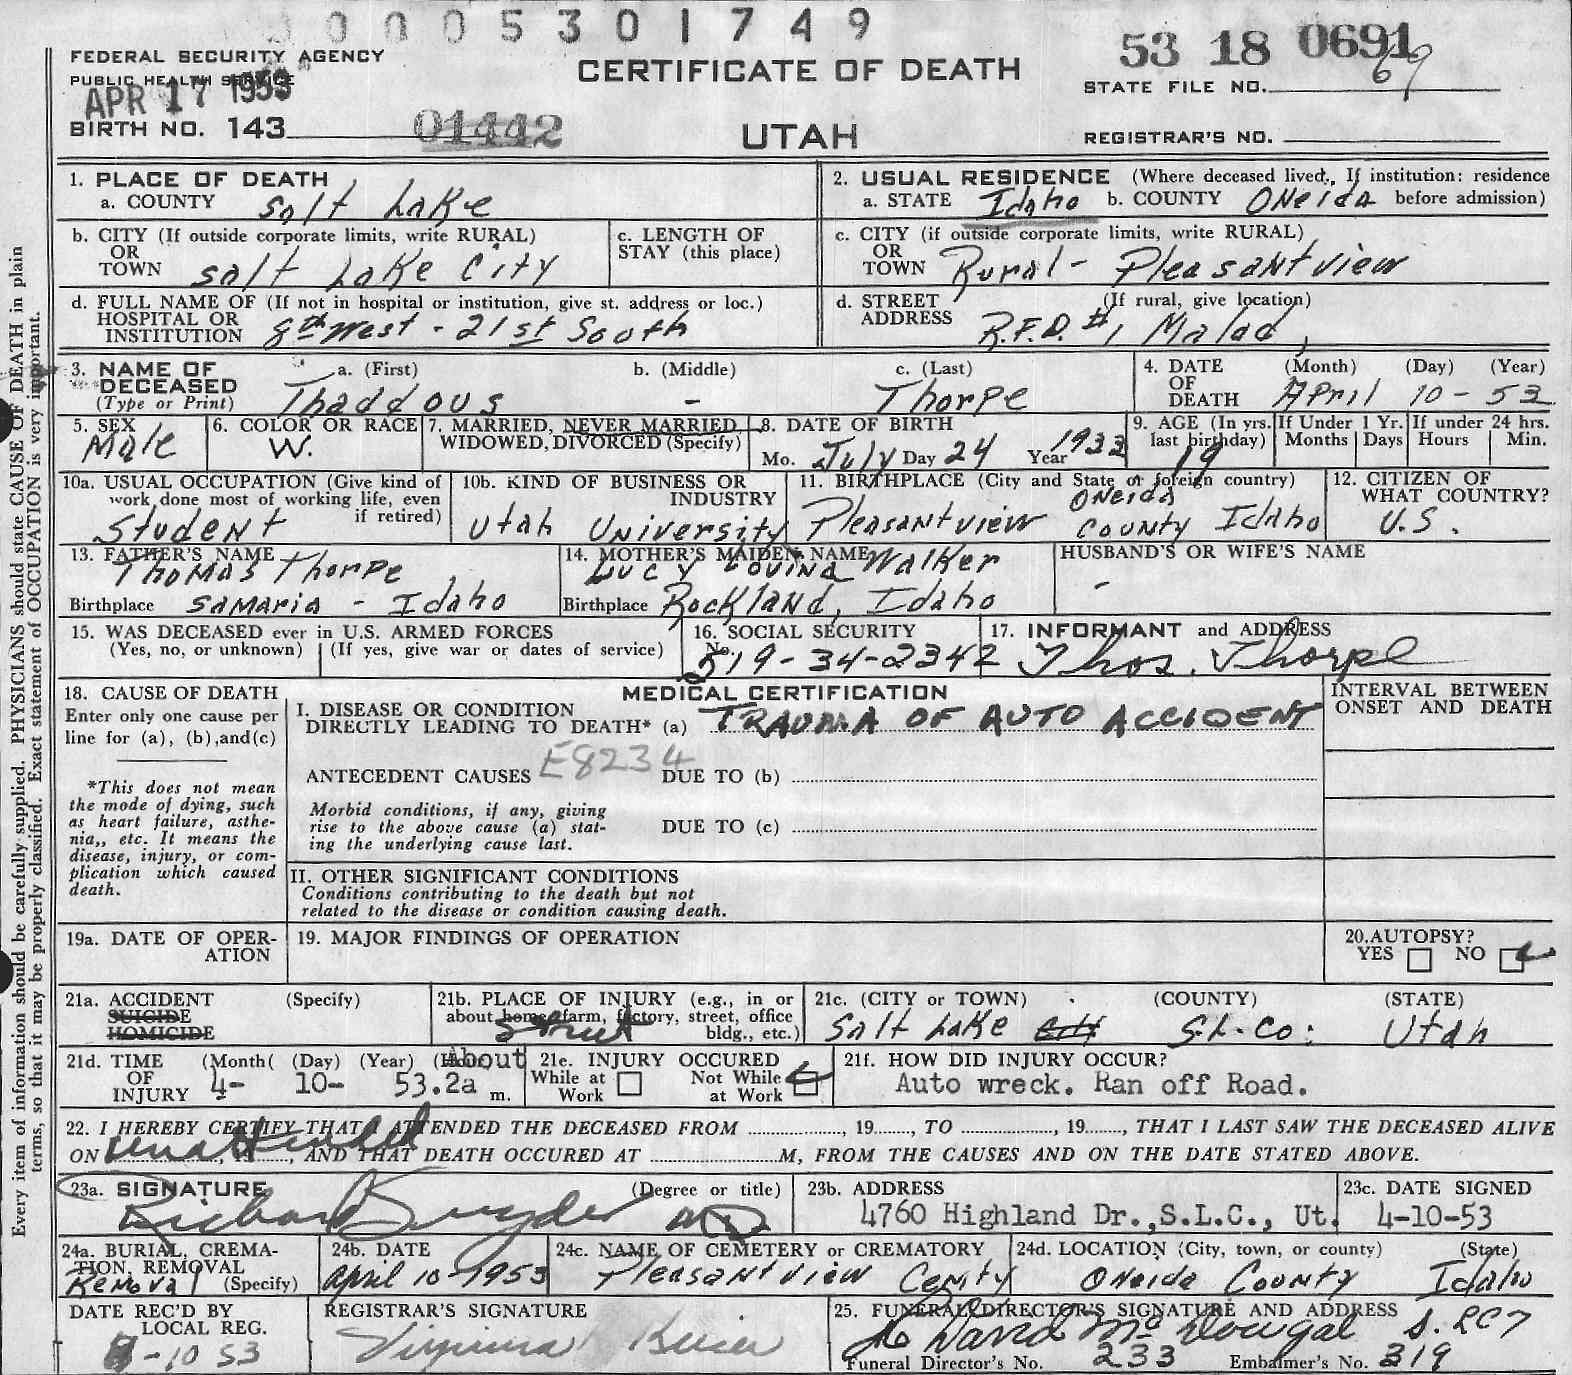 0005301749
FEDERAL SECURITY AGENCY
PUBLIC HEALTH SERVICE
APR 17 1953
BIRTH NO. 143
01442
CERTIFICATE OF DEATH
UTAH
53 18 0691
69
STATE FILE NO.
REGISTRAR'S NO.
Every item of information should be carefully supplied. PHYSICIANS should state CAUSE OF DEATH in plain
terms, so that it may be properly classified. Exact statement of OCCUPATION is very important.
1. PLACE OF DEATH
a. COUNTY Salt Lake
2. USUAL RESIDENCE (Where deceased lived. If institution: residence
a. STATE Idaho b. COUNTY Oneida before admission)
b. CITY (If outside corporate limits, write RURAL)
OR
TOWN Salt Lake City
c. LENGTH OF
STAY (this place)
c. CITY (if outside corporate limits, write RURAL)
OR
TOWN Rural - Pleasantview
d. FULL NAME OF (If not in hospital or institution, give st. address or loc.)
HOSPITAL OR
INSTITUTION 8th West - 21st South
d. STREET (If rural, give location)
ADDRESS R.F.D. #1 Malad,
3. NAME OF a. (First) b. (Middle) c. (Last)
DECEASED
(Type or Print) Thaddous - Thorpe
4. DATE (Month) (Day) (Year)
OF
DEATH April 10-53
5. SEX
Male
6. COLOR OR RACE
W.
7. MARRIED, NEVER MARRIED,
WIDOWED, DIVORCED (Specify)
8. DATE OF BIRTH
Mo. July Day 24 Year 1933
9. AGE (In yrs.
last birthday)
19
If Under 1 Yr.
Months Days
If under 24 hrs.
Hours Min.
10a. USUAL OCCUPATION (Give kind of
work done most of working life, even
if retired)
Student
10b. KIND OF BUSINESS OR
INDUSTRY
Utah University
11. BIRTHPLACE (City and State or foreign country)
Pleasantview Oneida County Idaho
12. CITIZEN OF
WHAT COUNTRY?
U.S.
13. FATHER'S NAME
Thomas Thorpe
Birthplace Samaria - Idaho
14. MOTHER'S MAIDEN NAME
Lucy Lovina Walker
Birthplace Rockland, Idaho
HUSBAND'S OR WIFE'S NAME
-
15. WAS DECEASED ever in U.S. ARMED FORCES
(Yes, no, or unknown) (If yes, give war or dates of service)
16. SOCIAL SECURITY
No.
519-34-2342
17. INFORMANT and ADDRESS
Thos. Thorpe
18. CAUSE OF DEATH
Enter only one cause per
line for (a), (b), and (c)
*This does not mean
the mode of dying, such
as heart failure, asthe-
nia,, etc. It means the
disease, injury, or com-
plication which caused
death.
MEDICAL CERTIFICATION
I. DISEASE OR CONDITION
DIRECTLY LEADING TO DEATH* (a) TRAUMA OF AUTO ACCIDENT
ANTECEDENT CAUSES E8234 DUE TO (b)
Morbid conditions, if any, giving
rise to the above cause (a) stat-
ing the underlying cause last.
DUE TO (c)
II. OTHER SIGNIFICANT CONDITIONS
Conditions contributing to the death but not
related to the disease or condition causing death.
INTERVAL BETWEEN
ONSET AND DEATH
19a. DATE OF OPER-
ATION
19. MAJOR FINDINGS OF OPERATION
20. AUTOPSY?
YES NO
21a. ACCIDENT (Specify)
SUICIDE
HOMICIDE
21b. PLACE OF INJURY (e.g., in or
about home, farm, factory, street, office
bldg., etc.)
Street
21c. (CITY or TOWN) (COUNTY) (STATE)
Salt Lake City S.L. Co: Utah
21d. TIME (Month( (Day) (Year) (Hour)
OF
INJURY 4- 10- 53. About 2a m.
21e. INJURY OCCURED
While at Work Not While at Work
21f. HOW DID INJURY OCCUR?
Auto wreck. Ran off Road.
22. I HEREBY CERTIFY THAT I ATTENDED THE DECEASED FROM ............, 19......, TO ............, 19......, THAT I LAST SAW THE DECEASED ALIVE
ON unattended, 19......, AND THAT DEATH OCCURED AT ............M, FROM THE CAUSES AND ON THE DATE STATED ABOVE.
23a. SIGNATURE (Degree or title)
Richard Snyder MD
23b. ADDRESS
4760 Highland Dr., S.L.C., Ut.
23c. DATE SIGNED
4-10-53
24a. BURIAL, CREMA-
TION, REMOVAL
Removal (Specify)
24b. DATE
April 10-1953
24c. NAME OF CEMETERY or CREMATORY
Pleasantview Cemty
24d. LOCATION (City, town, or county) (State)
Oneida County Idaho
DATE REC'D BY
LOCAL REG.
-10 53
REGISTRAR'S SIGNATURE
Virginia
25. FUNERAL DIRECTOR'S SIGNATURE AND ADDRESS
David McDougal S.LC7
Funeral Director's No. 233 Embalmer's No. 319